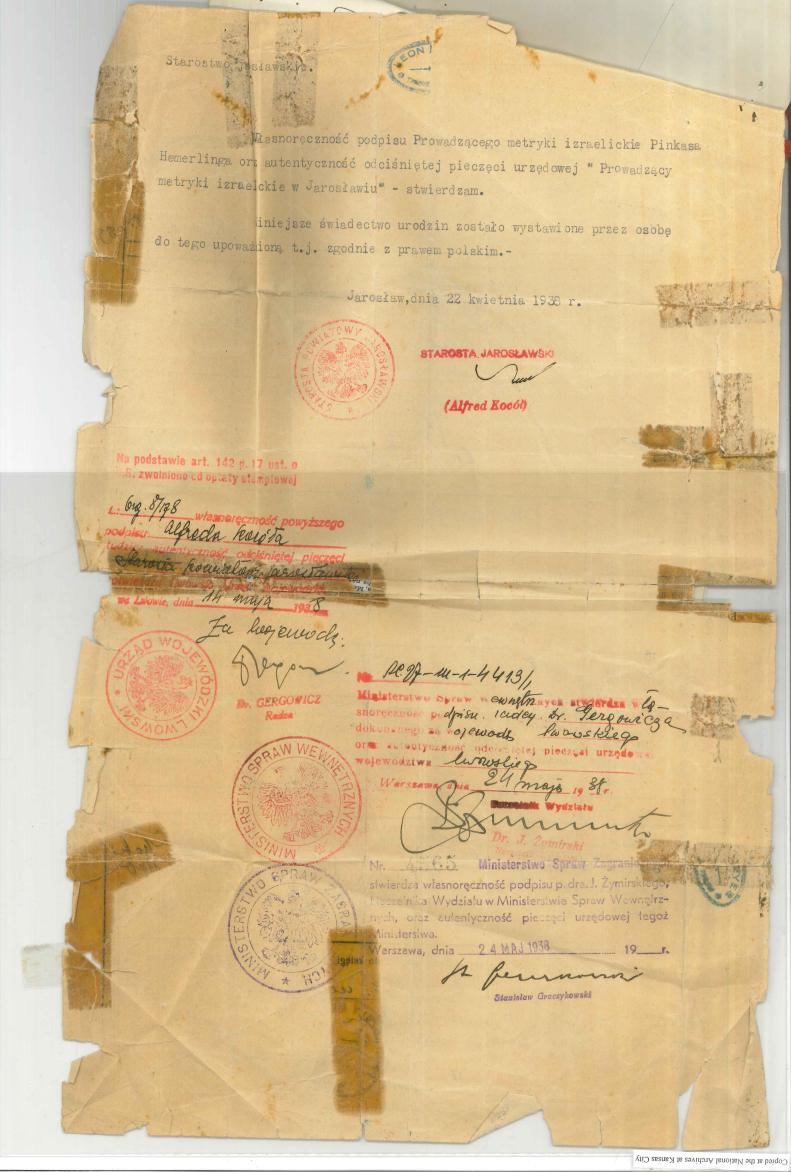 Starostwo Jarosławskie.
LEON
Własnoręczność podpisu Prowadzącego metryki izraelickie Pinkasa
Hemerlinga orz autentyczność odciśniętej pieczęci urzędowej " Prowadzący
metryki izraelckie w Jarosławiu" - stwierdzam.
Niniejsze świadectwo urodzin zostało wystawione przez osobę
do tego upoważnioną t.j. zgodnie z prawem polskim.-
Jarosław,dnia 22 kwietnia 1938 r.
STAROSTA POWIATOWY JAROSŁAWSKI
STAROSTA JAROSŁAWSKI
(Alfred Kocół)
Na podstawie art. 142 p. 17 ust. o
zwolniono od opłaty stemplowej
L. własnoręczność powyższego
podpisu Alfreda Kocóła
tudzież autentyczność odciśniętej pieczęci
Starosta powiatowy jarosławski
we Lwowie, dnia 14 maja 1938
Za Wojewodę:
URZĄD WOJEWÓDZKI LWOWSKI
Dr. GERGOWICZ
Radca
Nr
Ministerstwo Spraw Wewnętrznych stwierdza wła-
snoręczność podpisu radcy Dr. Gergowicza
dokonanego za wojewodę lwowskiego
oraz autentyczność odciśniętej pieczęci urzędowej
województwa lwowskiego
Warszawa, dnia 24 maja 1938 r.
Naczelnik Wydziału
Dr. J. Żymirski
MINISTERSTWO SPRAW WEWNĘTRZNYCH
Nr. Ministerstwo Spraw Zagranicznych
stwierdza własnoręczność podpisu p. dra. J. Żymirskiego,
Naczelnika Wydziału w Ministerstwie Spraw Wewnętrz-
nych, oraz autentyczność pieczęci urzędowej tegoż
Ministerstwa.
Warszawa, dnia 24 MAJ 1938 19 r.
MINISTERSTWO SPRAW ZAGRANICZNYCH
Stanisław Graczykowski
Copied at the National Archives at Kansas City